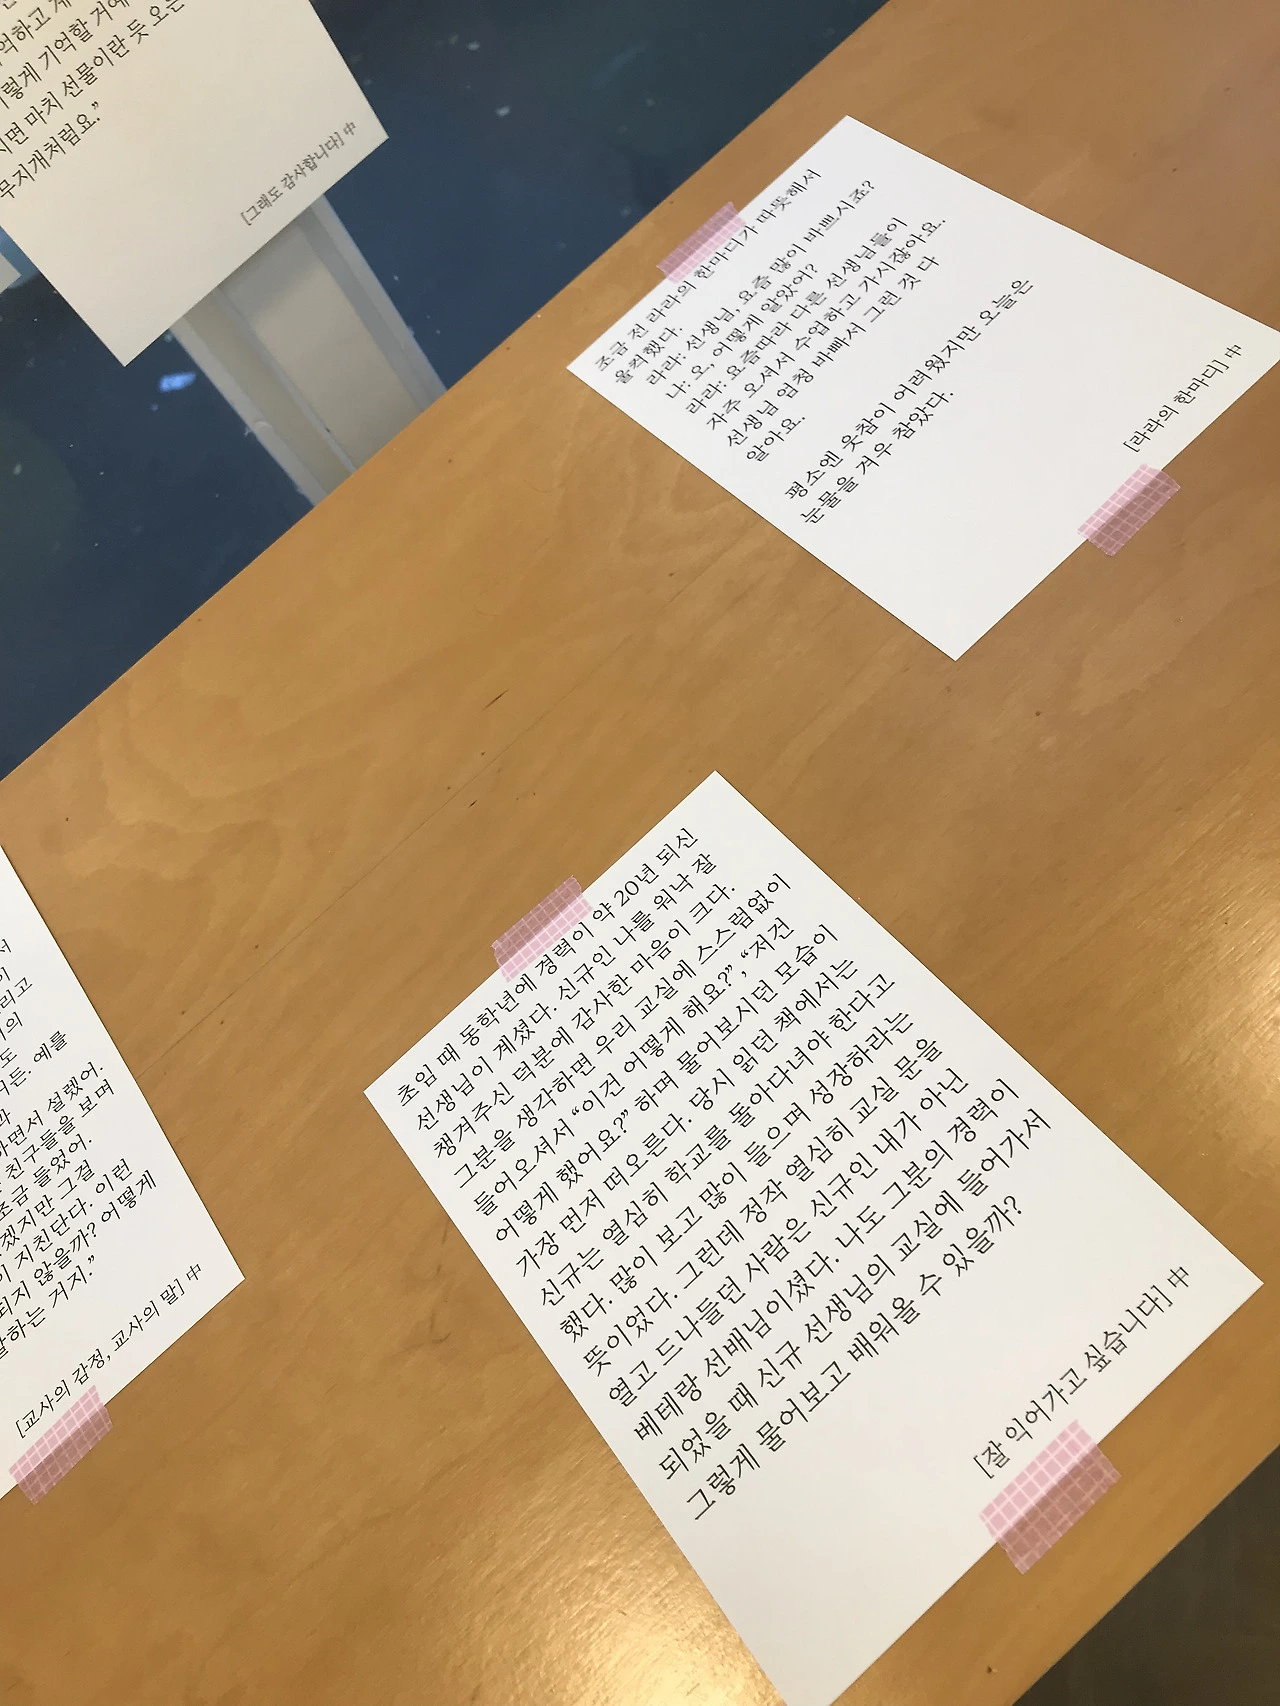 억하고 계
렇게 기억할 거예
지면 마치 선물이란 듯 오는
무지개처럼요.”
[그래도 감사합니다] 中
조금 전 라라의 한마디가 따뜻해서
울컥했다.
라라: 선생님, 요즘 많이 바쁘시죠?
나: 오, 어떻게 알았어?
라라: 요즘따라 다른 선생님들이
자주 오셔서 수업하고 가시잖아요.
선생님 엄청 바빠서 그런 것 다
알아요.
평소엔 웃참이 어려웠지만 오늘은
눈물을 겨우 참았다.
[라라의 한마디] 中
서
이
리고
의
도
거든. 예를
과
하면서 설렜어.
친구들을 보며
조금 들었어.
겠지만 그걸
이 지친단다. 이런
되지 않을까? 어떻게
말하는 거지.”
[교사의 감정, 교사의 말] 中
초임 때 동학년에 경력이 약 20년 되신
선생님이 계셨다. 신규인 나를 워낙 잘
챙겨주신 덕분에 감사한 마음이 크다.
그분을 생각하면 우리 교실에 스스럼없이
들어오셔서 “이건 어떻게 해요?”, “저건
어떻게 했어요?” 하며 물어보시던 모습이
가장 먼저 떠오른다. 당시 읽던 책에서는
신규는 열심히 학교를 돌아다녀야 한다고
했다. 많이 보고 많이 들으며 성장하라는
뜻이었다. 그런데 정작 열심히 교실 문을
열고 드나들던 사람은 신규인 내가 아닌
베테랑 선배님이셨다. 나도 그분의 경력이
되었을 때 신규 선생님의 교실에 들어가서
그렇게 물어보고 배워올 수 있을까?
[잘 익어가고 싶습니다] 中